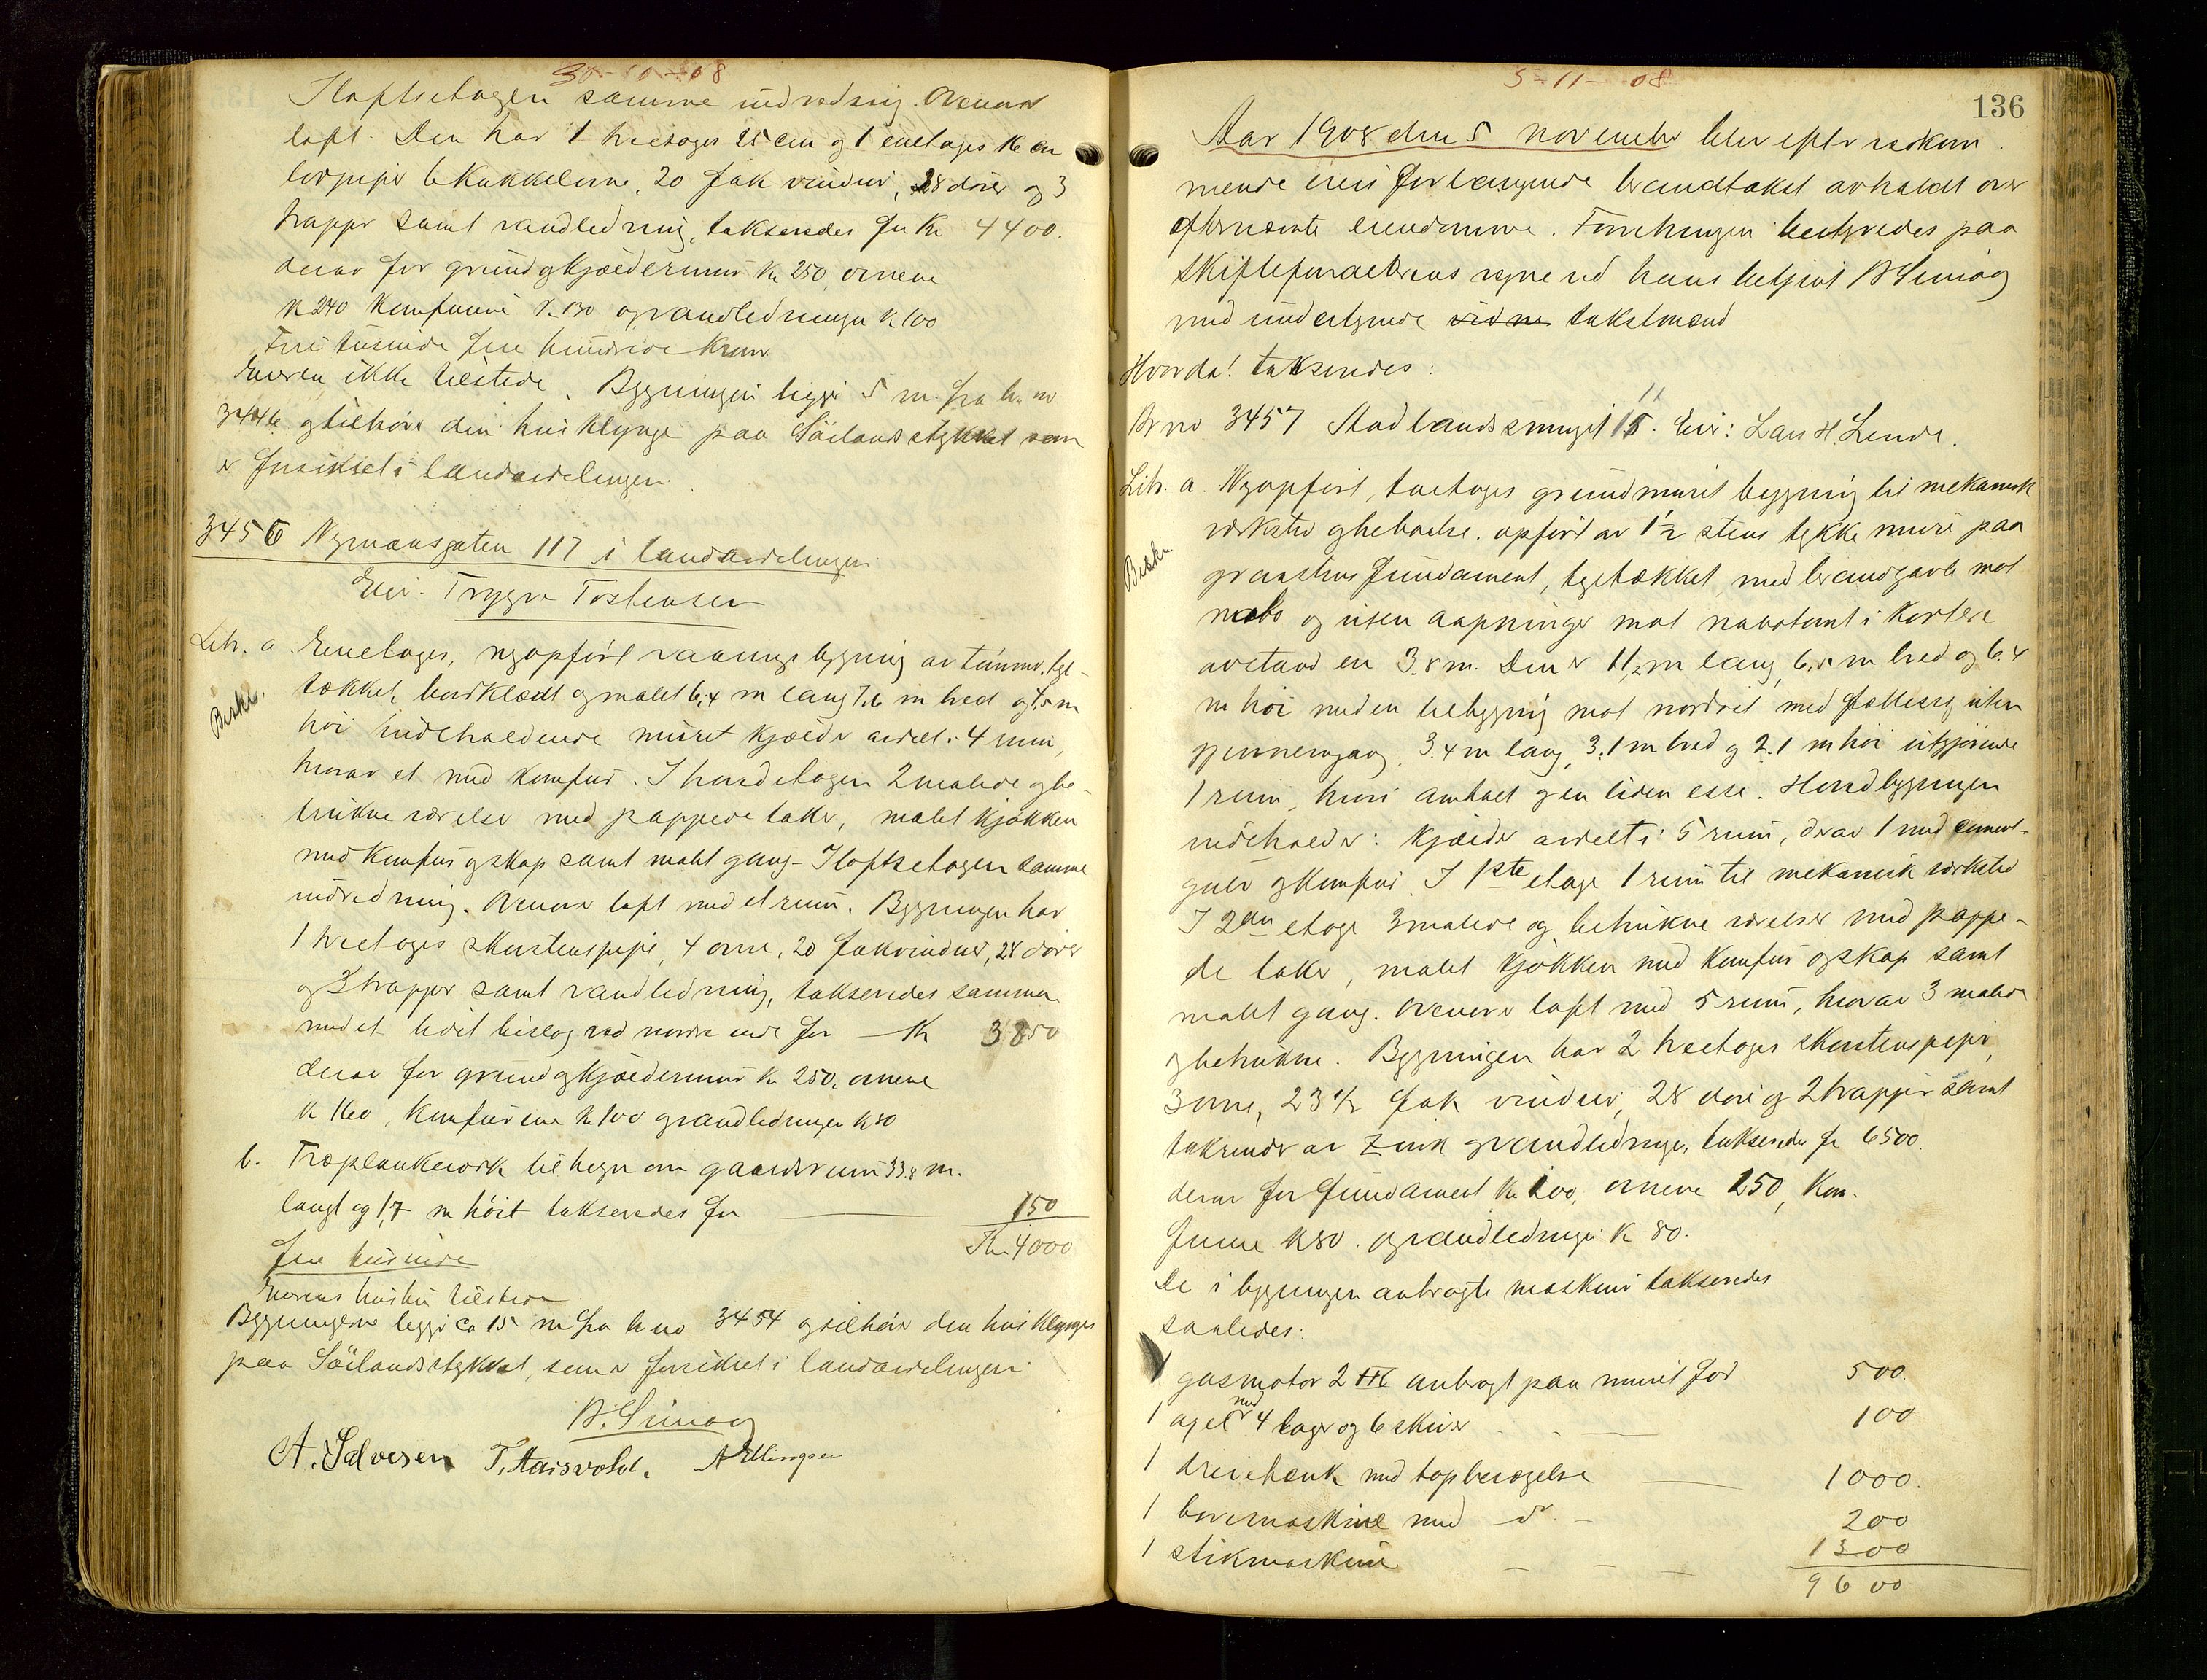 30-10-08
I loftsetagen samme indredning. Ovenover
loft. Den har 1 treetages 25 cm og 1 enetages 16 cm
6 kakkelovne, 20 fak vinduer, 28 dører og 3
trapper samt vandledning, takseredes for Kr 4400.
derav for grund og kjældermur Kr 250, ovnene
Kr 240 Komfurene Kr 130 og vandledningen Kr 100
Fire tusinde fire hundrede Kroner
Eieren ikke tilstede. Bygningen ligger 5 m. fra br. no
3446 og tilhører den husklynge paa Sörlandsstykket som
er forsikret i landavdelingen.
3456 Nymansgaten 117 i landavdelingen
Eier: Trygve Tostensen
Litr. a Enetages, nyopført vaaningsbygning av tømmer, tegl-
Beskr.
tækket, bordklædt og malet 6,4 m lang 7,6 m bred og 7,5 m
høi indeholdende muret kjælder avdelt i 4 rum,
hvorav et med komfur. I hovedetagen 2 malede og be-
trukne værelser med pappede taker, malet kjøkken
med komfur og skap samt malet gang. I loftsetagen samme
indredning. Ovenover loft med et rum. Bygningen har
1 treetages skorstenspipe, 4 ovne, 20 fak vinduer, 28 dører
og 3 trapper samt vandledning, takseredes sammen
med et litet bislag ved nordre ende for — Kr 3850
derav for grund og kjældermur Kr 250, ovnene
Kr 160, komfurene Kr 100 og vandledningen Kr 80
b. Træplankeverk til hegn om gaardsrum 33,8 m.
langt og 1,7 m høit takseredes for — 150
Kr. 4000
fire tusinde
Eierens hustru tilstede
Bygningerne ligger ca 15 m fra br no 3454 og tilhører den husklynge
paa Sörlandsstykket, som er forsikret i landavdelingen.
A. Salvesen T. Aarsvold. A Ellingsen
5-11-08
136
Aar 1908 den 5 november blev efter vedkom
mende eiers forlangende brandtakst avholdt over
efternævnte eiendomme. Forretningen bestyredes paa
skifteforvalterens vegne ved hans betjent
med undertegnede vidne takstmænd
Hvorda! takseredes:
11
Br no 3457 Stadlandssmuget 15. Eier: Lars H. Lende.
Litr. a. Nyopført, toetages grundmuret bygning til mekanisk
Beskr.
verksted og beboelse, opført av 1½ stens tykke mure paa
graastens fundament, teglækket, med brandgavle mot
nabo og uten aapninger mot nabotomt i kortere
avstand en 3,8 m. Den er 11,2 m lang, 6,8 m bred og 6,4
m høi med en tilbygning mot nordvest med fællesvæg uten
gjennemgang, 3,4 m lang, 3,1 m bred og 2,1 m høi utgjørende
1 rum, hvori ambolt og en liden esse. Hovedbygningen
indeholder: kjælder avdelt i 5 rum, derav 1 med cement-
gulv og komfur. I 1ste etage 1 rum til mekanisk verksted
I 2den etage 3 malede og betrukne værelser med pappe-
de taker, malet kjøkken med komfur og skap samt
malet gang. Ovenover loft med 5 rum, hvorav 3 malede
og betrukne. Bygningen har 2 treetages skorstenspiper,
3 ovne, 23½ fak vinduer, 28 dører og 2 trapper samt
takrender av zink og vandledninger, takseredes for 6500.
derav for fundament Kr 200, ovnene 250, Kom-
furene Kr 80. og vandledninger Kr 80.
De i bygningen anbragte maskiner takseredes
saaledes:
1 gasmotor 2 HK anbragt paa muret fod 500.
1 axel med 4 lager og 6 skiver — 100
1 dreiebænk med topbevægelse — 1000.
1 boremaskine med do — 200
1 stikmaskine — 1300
9600